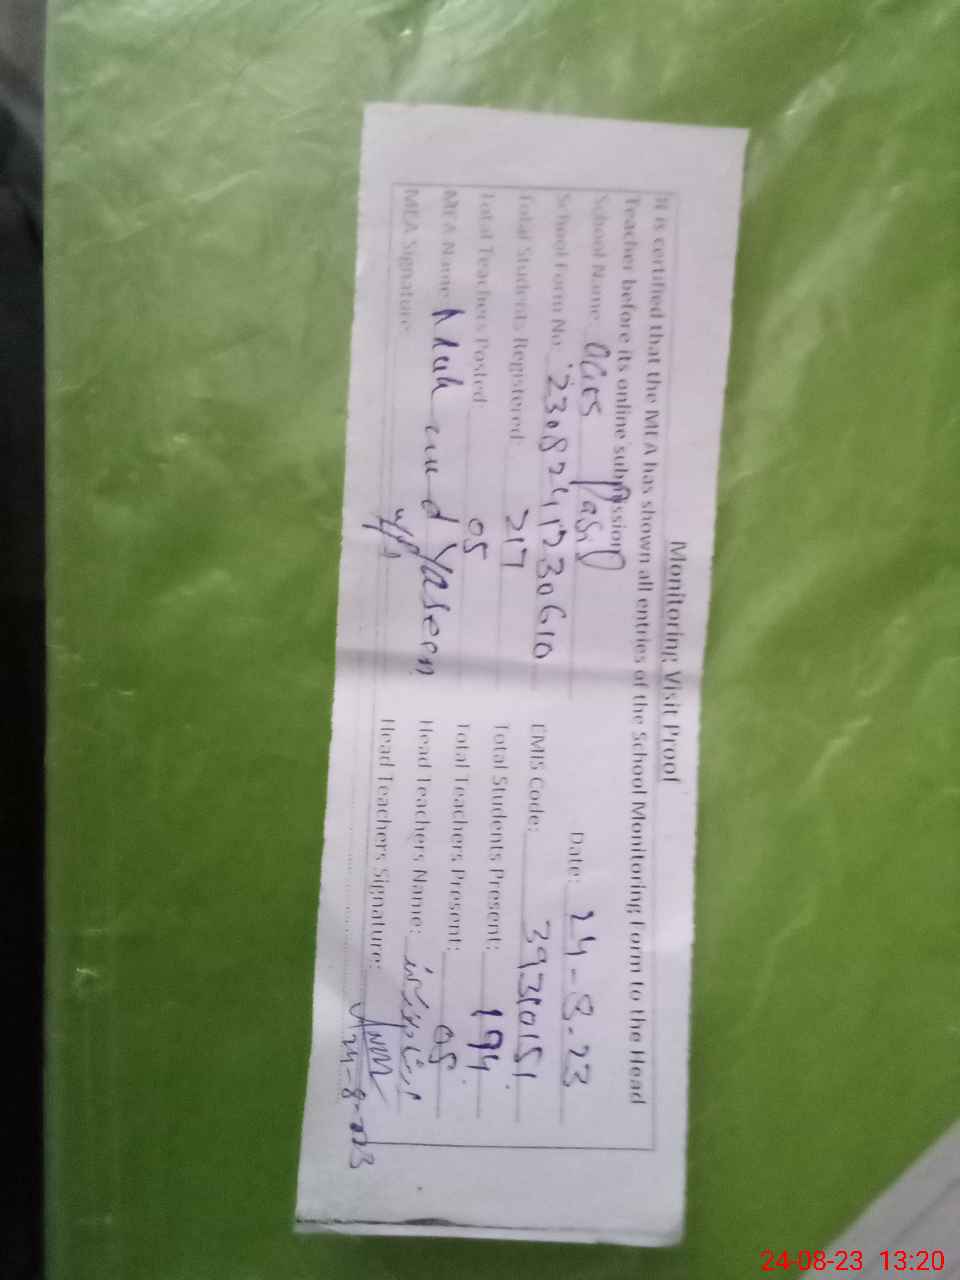 Monitoring Visit Proof
It is certified that the MEA has shown all entries of the School Monitoring Form to the Head
Teacher before its online submission
Date: 24-8-23
School Name:
School Form No. 2308241230610
EMIS Code: 39310151
Total Students Registered: 217
Total Students Present: 194
Total Teachers Posted: 05
Total Teachers Present: 05
MEA Name: Yaseen
Head Teachers Name:
MEA Signature:
Head Teachers Signature:
24-8-23
24-08-23 13:20